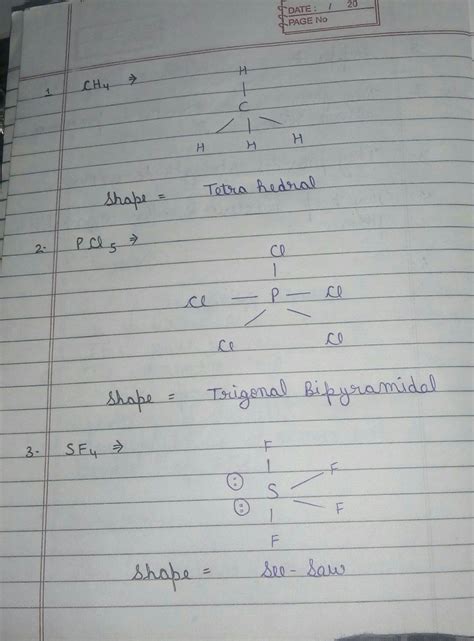 DATE: / 20
PAGE No
1. CH4 ⇒
H
C
H H H
Shape = Tetra hedral
2. PCl5 ⇒
Cl
Cl — P — Cl
Cl Cl
Shape = Trigonal Bipyramidal
3. SF4 ⇒
F
F
S
F
F
Shape = See-Saw